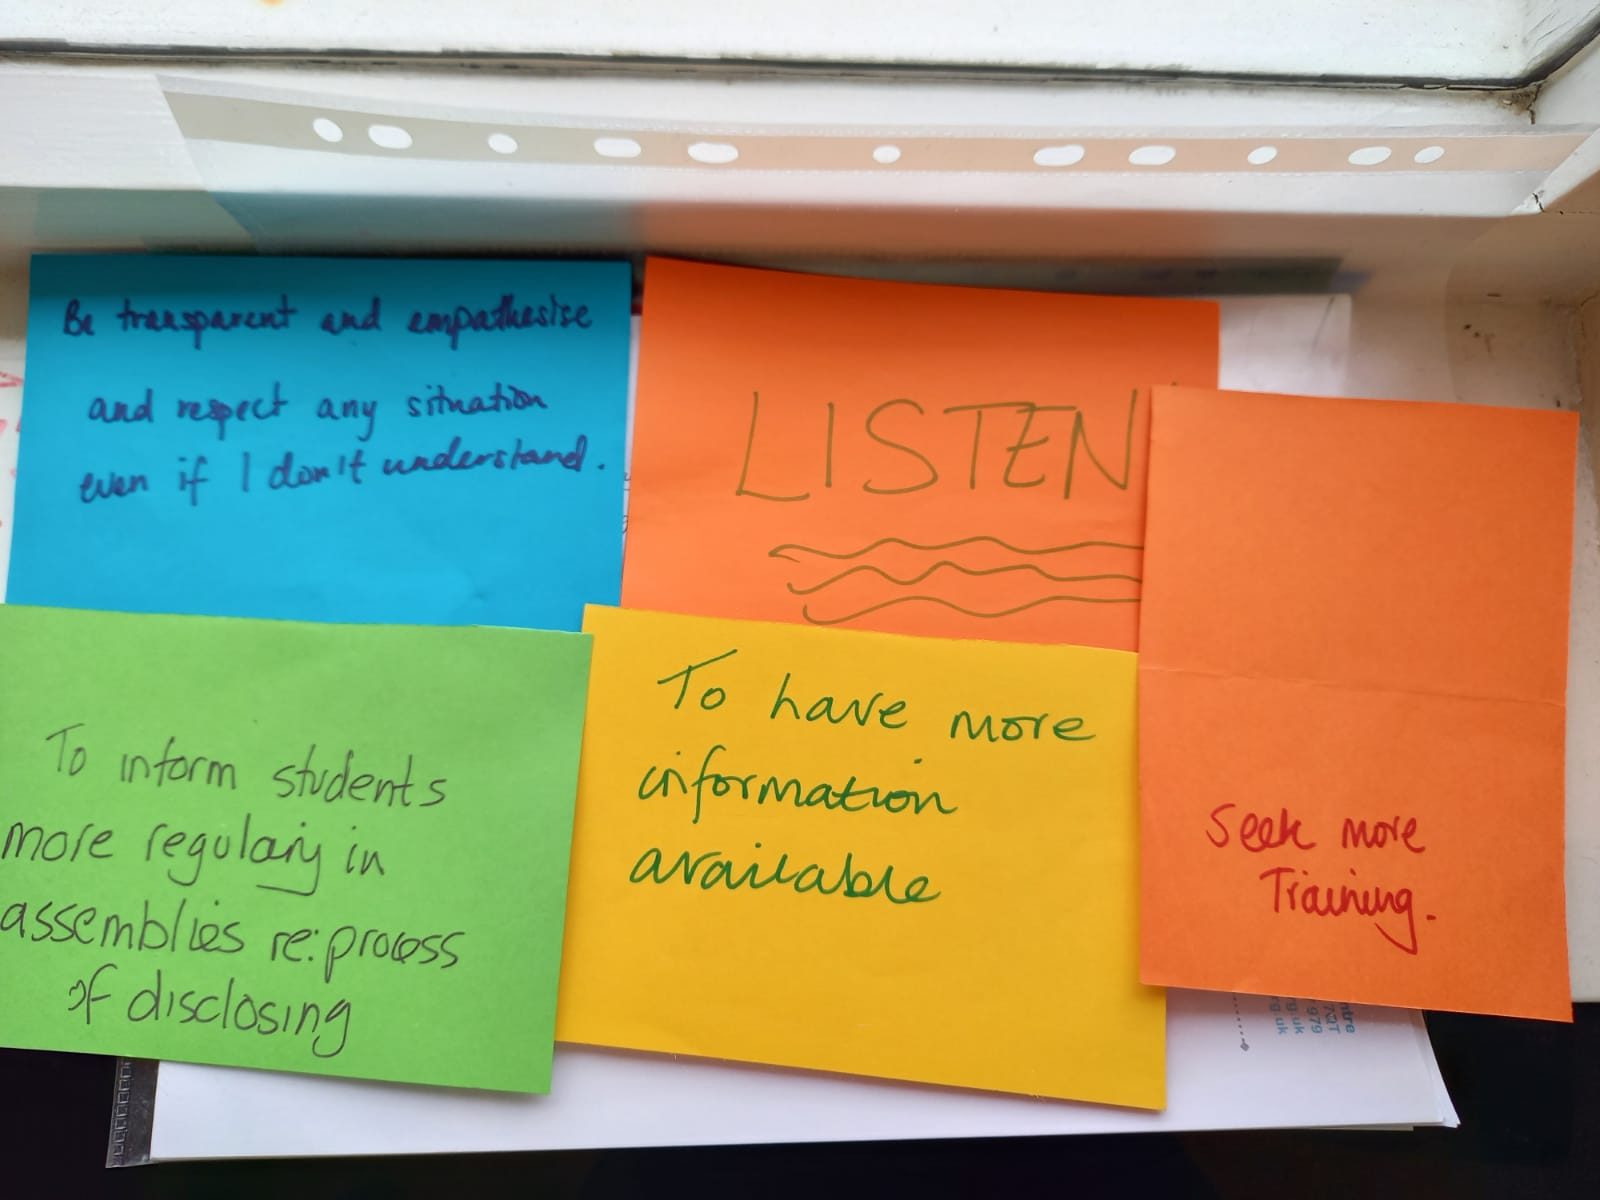 Be transparent and empathesise
and respect any situation
even if I don't understand.
LISTEN
To inform students
more regularly in
assemblies re: process
of disclosing
To have more
information
available
Seek more
Training.